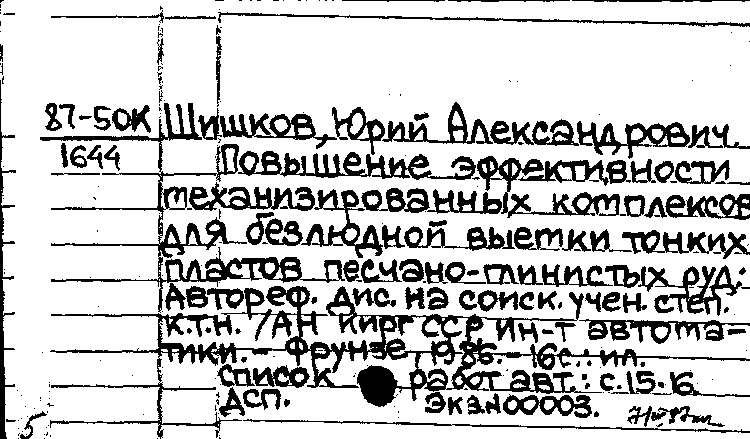 87-50К Шишков, Юрий Александрович.
1644 Повышение эффективности
механизированных комплексов
для безлюдной выемки тонких
пластов песчано-глинистых руд:
Автореф. дис. на соиск. учен. степ.
к.т.н. /АН Кирг ССР Ин-т автома-
тики. - Фрунзе, 1986. - 16с.: ил.
Список работ авт.: с.15-16
ДСП. Экз№00003.
5